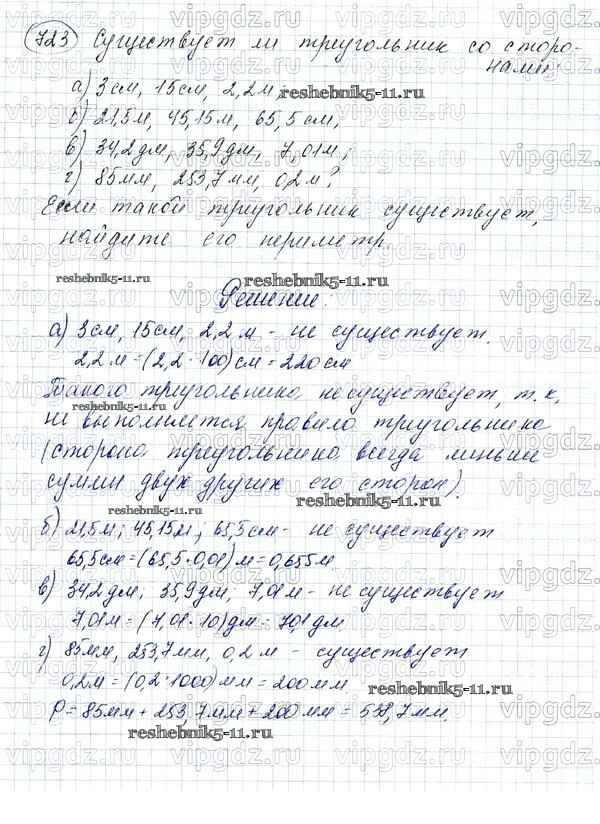 723 Существует ли треугольник со сторо-
нами:
а) 3 см, 15 см, 2,2 м; reshebnik5-11.ru
б) 21,5 м, 45,15 м, 65,5 см;
в) 34,2 дм, 35,9 дм, 7,01 м;
г) 85 мм, 253,7 мм, 0,2 м?
Если такой треугольник существует,
найдите его периметр.
reshebnik5-11.ru reshebnik5-11.ru
Решение:
а) 3 см, 15 см, 2,2 м - не существует.
2,2 м = (2,2 · 100) см = 220 см
Такого треугольника не существует, т.к.
reshebnik5-11.ru
не выполняется правило треугольника
(сторона треугольника всегда меньше
суммы двух других его сторон).
reshebnik5-11.ru
б) 21,5 м; 45,15 м; 65,5 см - не существует
65,5 см = (65,5 · 0,01) м = 0,655 м
reshebnik5-11.ru
в) 34,2 дм, 35,9 дм, 7,01 м - не существует
7,01 м = (7,01 · 10) дм = 70,1 дм
г) 85 мм, 253,7 мм, 0,2 м - существует
0,2 м = (0,2 · 1000) мм = 200 мм reshebnik5-11.ru
P = 85 мм + 253,7 мм + 200 мм = 538,7 мм.
reshebnik5-11.ru
vipgdz.ru